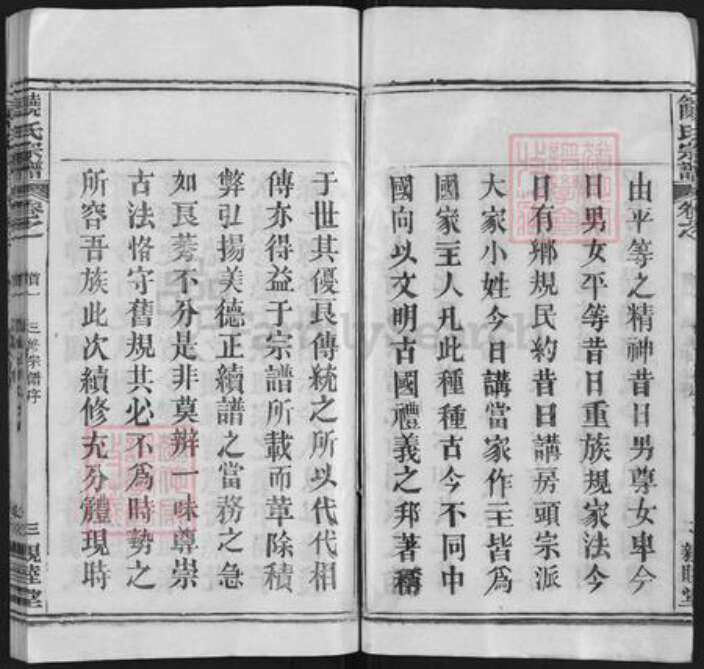 由平等之精神昔日男尊女卑今
日男女平等昔日重族規家法今
日有鄉規民約昔日講房頭宗派
大家小姓今日講當家作主皆爲
國家主人凡此種種古今不同中
國向以文明古國禮義之邦著稱
于世其優良傳統之所以代代相
傳亦得益于宗譜所載而革除積
弊弘揚美德正續譜之當務之急
如良莠不分是非莫辨一味尊崇
古法恪守舊規其必不爲時勢之
所容吾族此次續修充分體現時
饒氏宗譜
卷之一
首一
三修宗譜序
三
親睦堂
FamilySearch